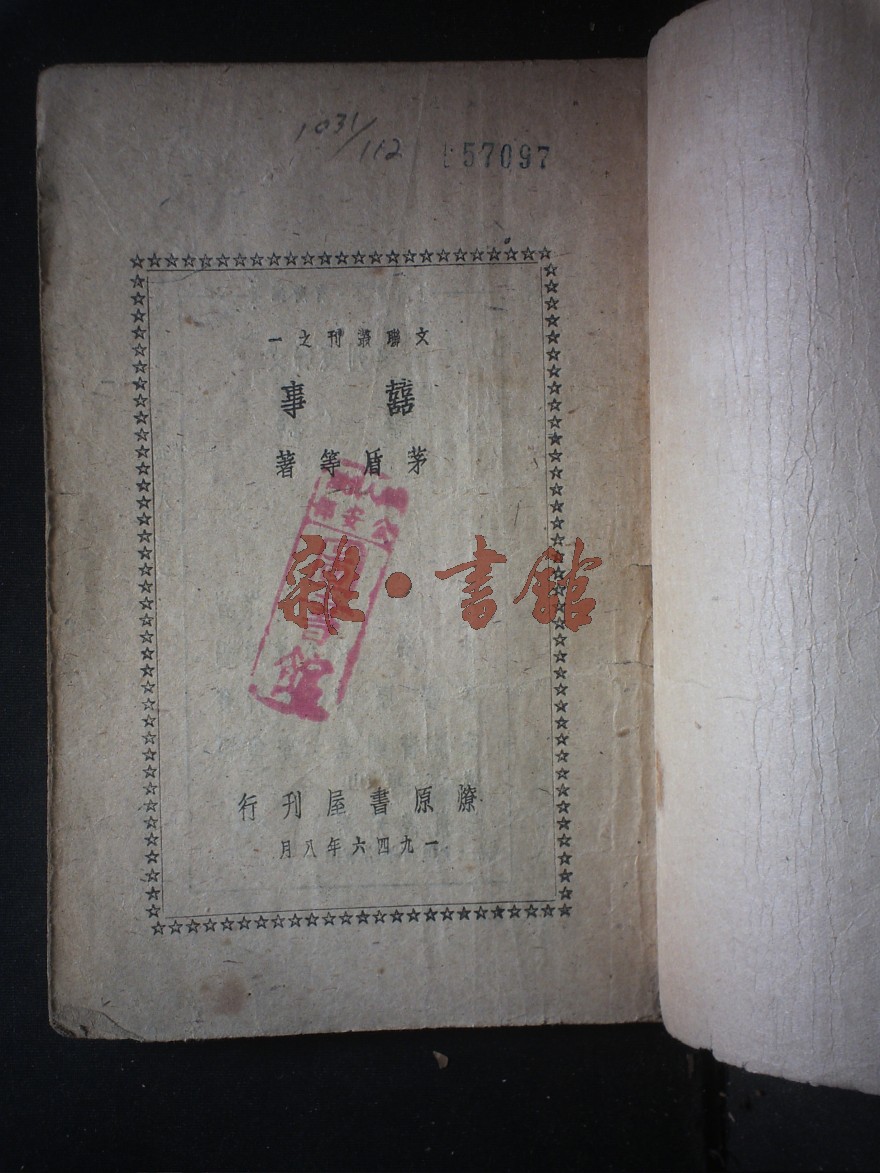 1031/112
57097
文聯叢刊之一
囍事
茅盾等著
公安
館
雜·書館
燎原書屋刊行
一九四六年八月